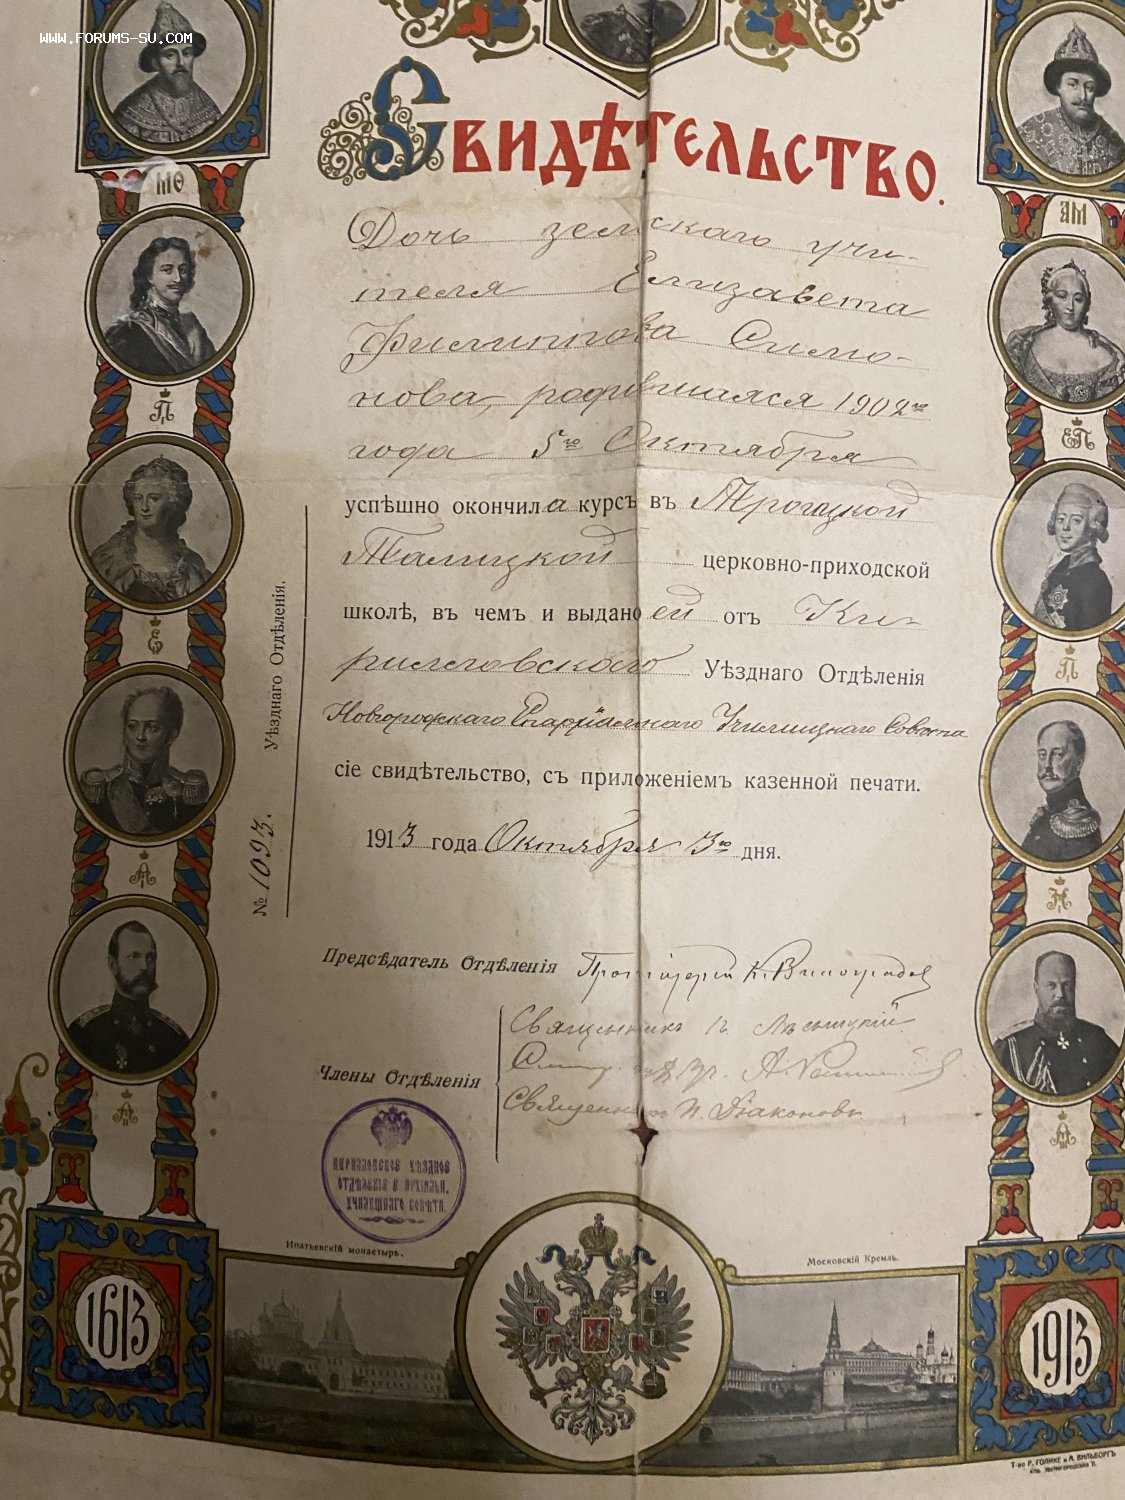 WWW.FORUMS-SU.COM
Свидѣтельство.
МѲ
АМ
Дочь земскаго учи-
теля Елизавета
Филиппова Симо-
нова, родившаяся 1902 го
года 5 го Октября
успѣшно окончила курсъ въ Троицкой
Талицкой церковно-приходской
школѣ, въ чемъ и выдано ей отъ Ки-
рилловскаго Уѣзднаго Отдѣленія
Новгородскаго Епархіальнаго Училищнаго Совѣта
сіе свидѣтельство, съ приложеніемъ казенной печати.
1913 года Октября 3 го дня.
№ 1093. Уѣзднаго Отдѣленія.
Предсѣдатель Отдѣленія Протоіерей К. Виноградов
Члены Отдѣленія
Священникъ
Священникъ Діаконовъ
КИРИЛЛОВСКОЕ УѢЗДНОЕ
ОТДѢЛЕНІЕ
УЧИЛИЩНАГО СОВѢТА.
Ипатьевскій монастырь.
Московскій Кремль.
1613
1913
Т-во Р. ГОЛИКЕ и А. ВИЛЬБОРГЪ
СПБ. ЗВЕНИГОРОДСКАЯ 11.